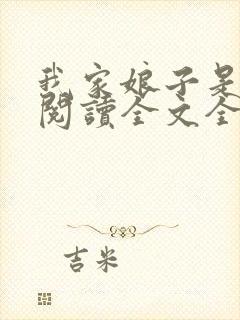 我家娘子是
閱讀全文全
吉米